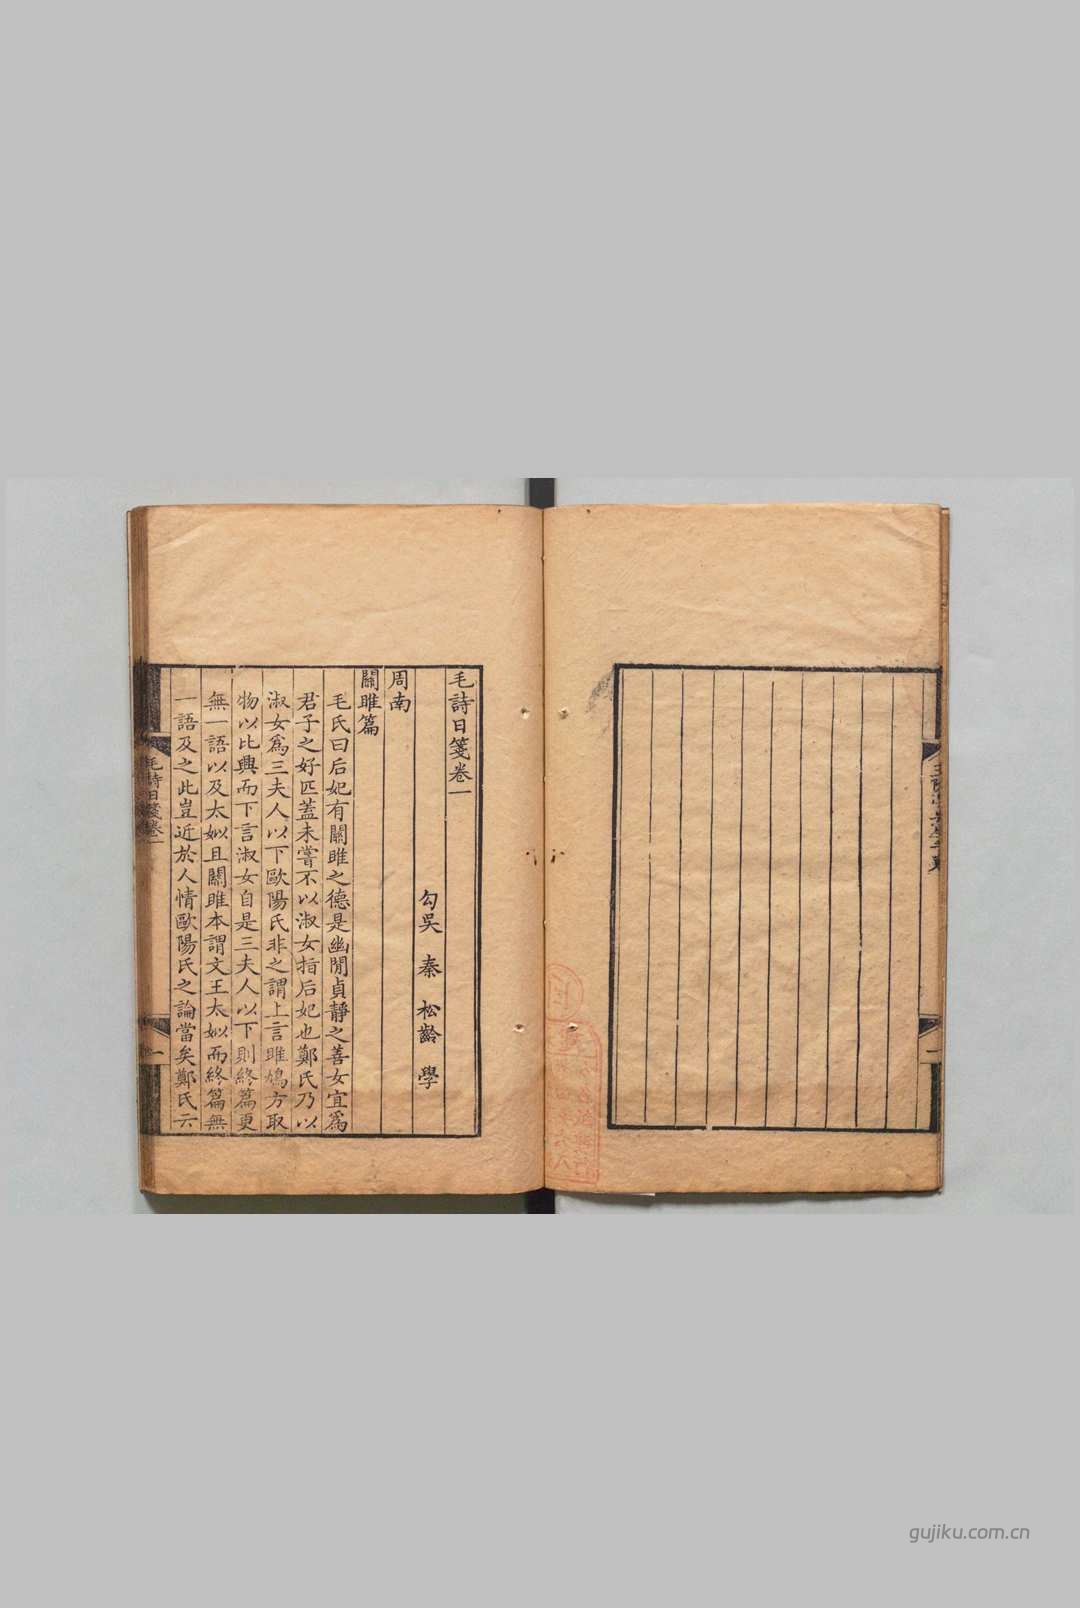 毛詩日箋卷一
勾吳　秦　松齡　學
周南
關雎篇
毛氏曰后妃有關雎之德是幽閒貞靜之善女宜爲
君子之好匹蓋未嘗不以淑女指后妃也鄭氏乃以
淑女爲三夫人以下歐陽氏非之謂上言雎鳩方取
物以比興而下言淑女自是三夫人以下則終篇更
無一語以及太姒且關雎本謂文王太姒而終篇無
一語及之此豈近於人情歐陽氏之論當矣鄭氏云
毛詩日箋卷一
一
一
gujiku.com.cn